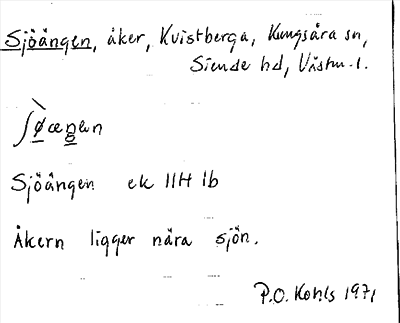 Sjöängen, åker, Kvistberga, Kungsåra sn,
Siende hd, Västm. l.
Sjöängen ek 11H 1b
Åkern ligger nära sjön.
P.O. Kohls 1971